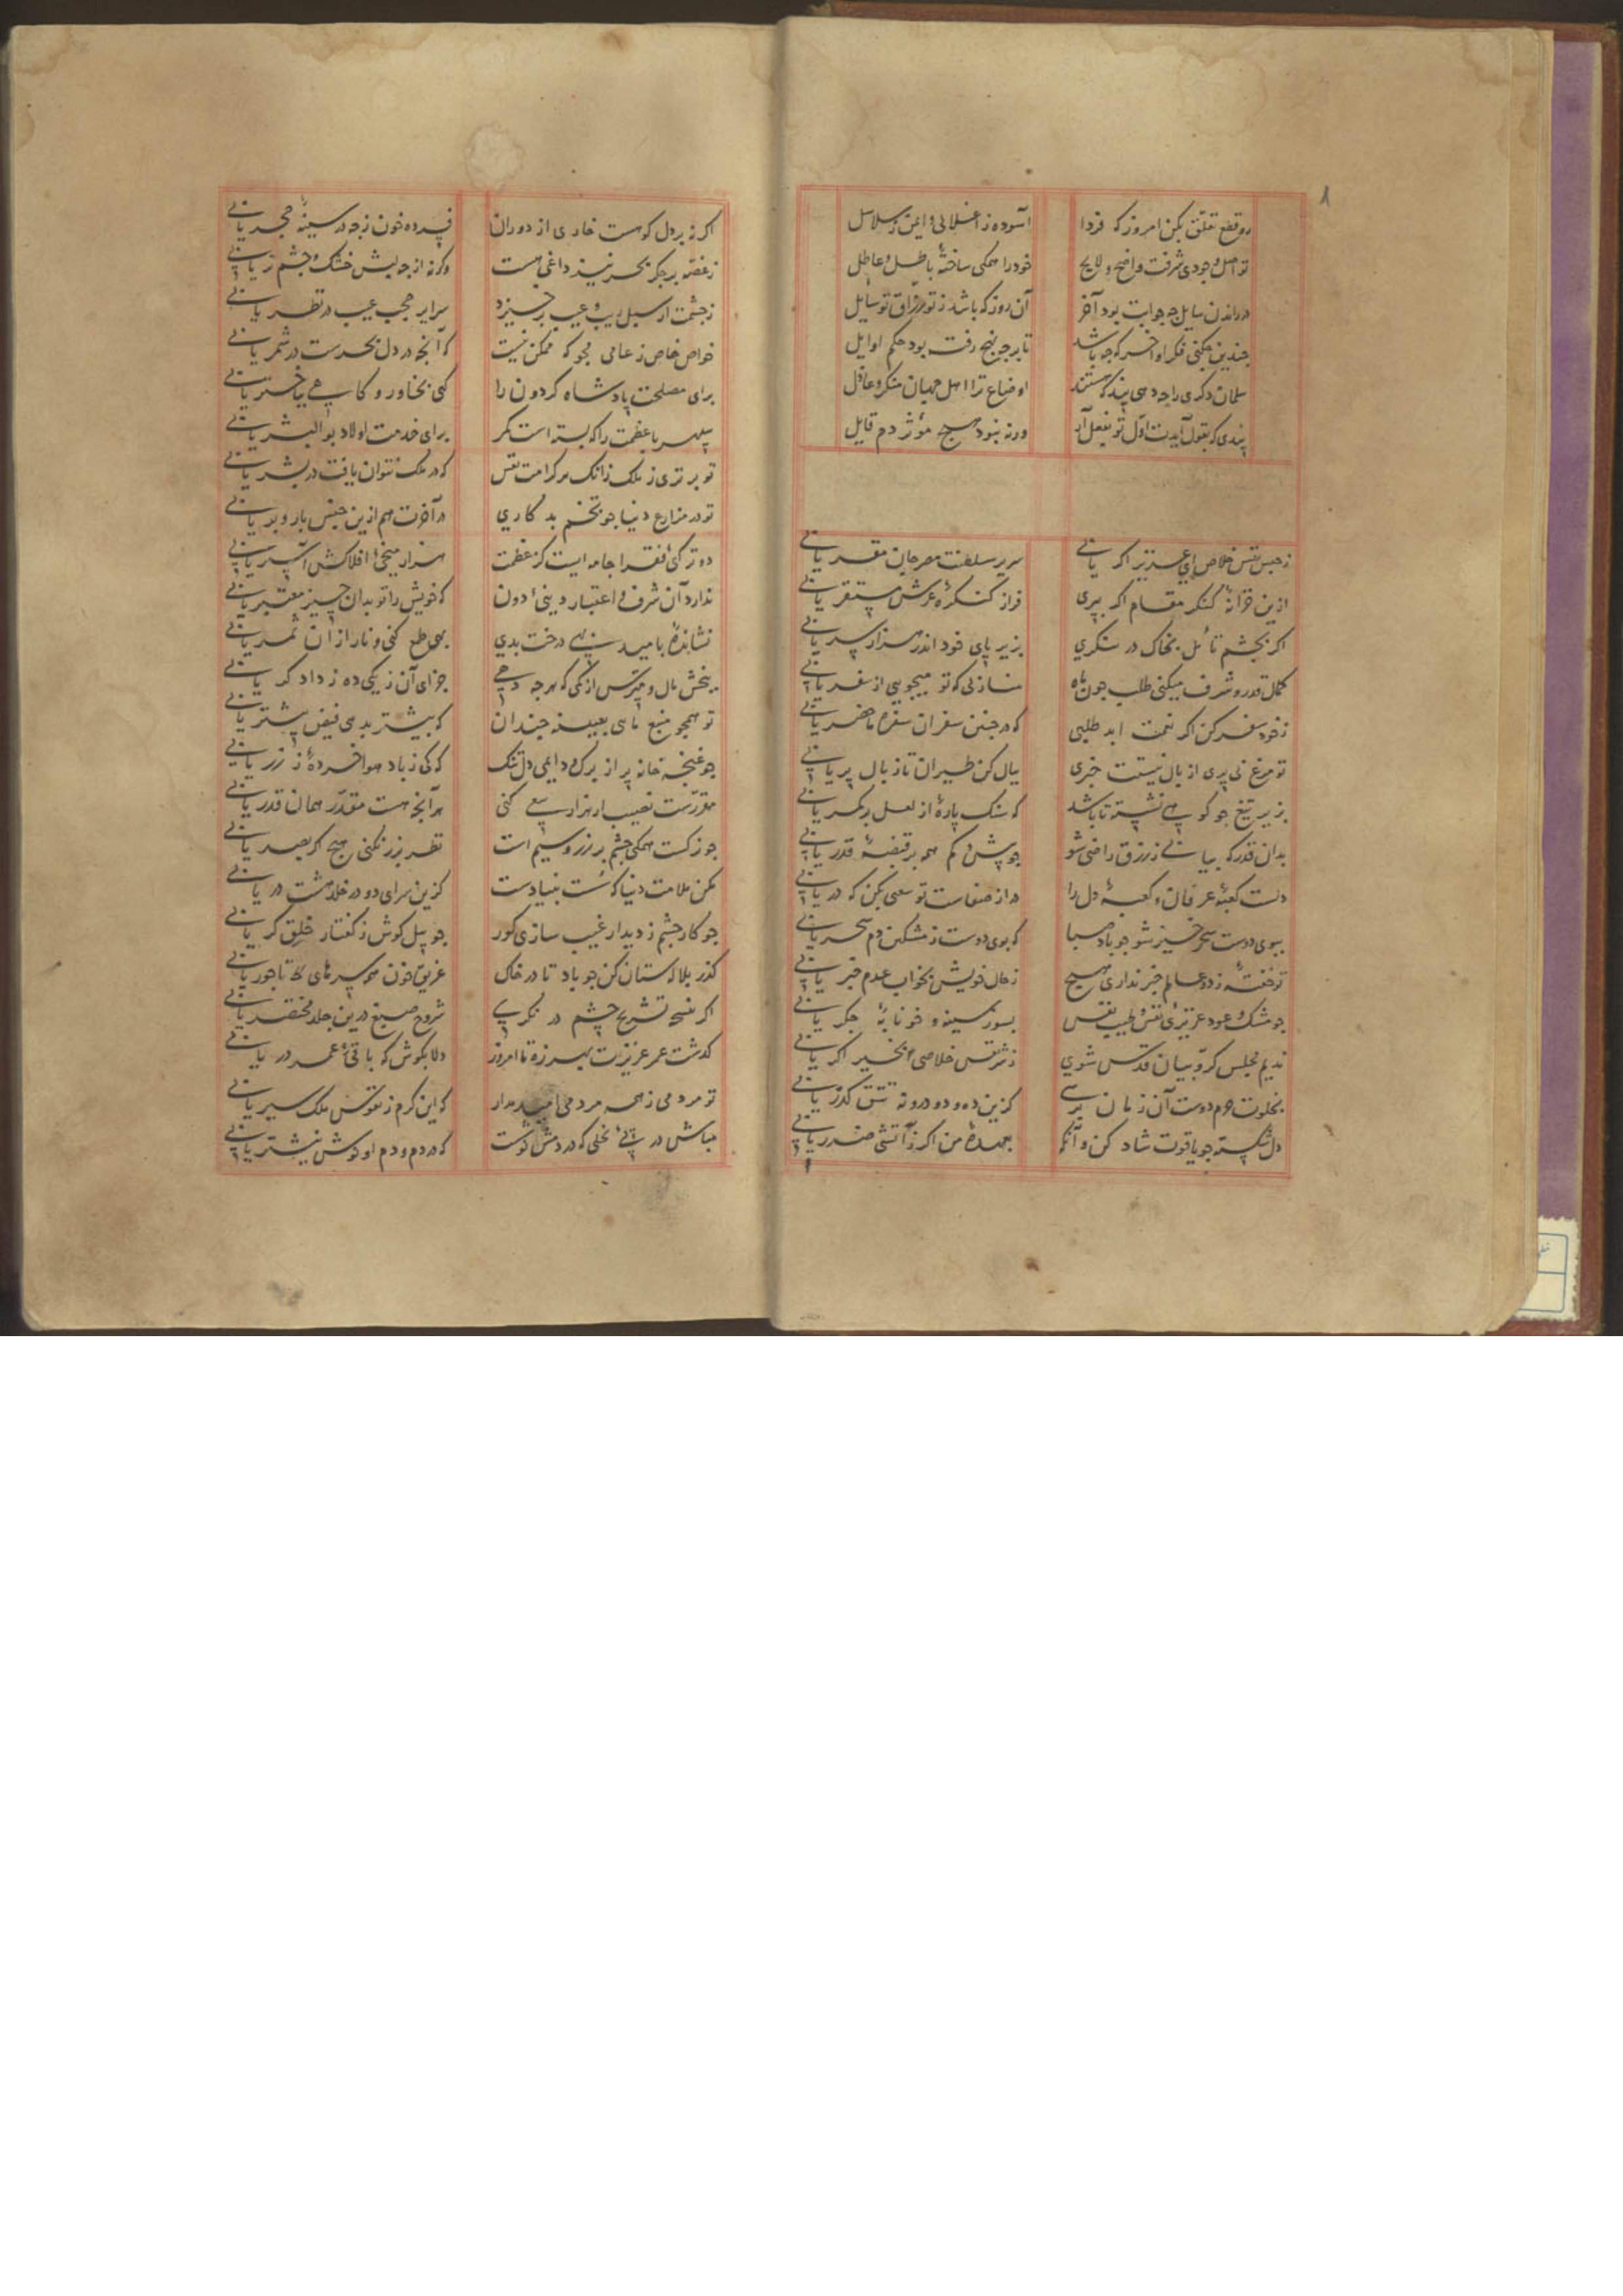 رو قطع تعلق بکن امروز که فردا
آسوده ز اغلالی و ایمن ز سلاسل
تو اصل وجودی شرفت واضح و لایح
خود را همگی ساختهٔ باطل و عاطل
در راندن سایل چه جوابت بود آخر
آن روز که باشد ز تو رزاق تو سایل
چندین چکنی فکر اواخر که چه باشد
تا بر چه نهج رفت بود حکم اوایل
سلمان دگری را چه دهی پند که هستند
اوضاع ترا اهل جهان منکر و عاذل
پندی که بقول آیدت اول تو بفعل آر
ورنه نبود هیچ مؤثر دم قایل
ز حبس نفس خلاص ای عزیز اگر یابی
سریر سلطنت مصر جان مقر یابی
ازین خرابه کنکر مقام اگر ببری
فراز کنکرهٔ عرش مستقر یابی
اگر بچشم تأمل بخاک در نگری
بزیر پای خود اندر هزار سر یابی
کمال قدر و شرف میکنی طلب چون ماه
منازلی که تو میجویی از سفر یابی
ز خود سفر کن اگر نعمت ابد طلبی
که در چنین سفر آن سفره ما حضر یابی
تو مرغ نی پری از بال نیستت خبری
ببال کن طیران تا ز بال پر یابی
بزیر تیغ چو کوه نشسته تا باشد
که سنگ پارهٔ از لعل بر کمر یابی
بدان قدر که بیابی ز رزق راضی شو
چو بیش و کم همه بر قبضهٔ قدر یابی
دلست کعبهٔ عرفان و کعبهٔ دل را
در از صفاست تو سعی بکن که در یابی
ببوی دوست سحرخیز شو چو باد صبا
که بوی دوست ز مشکین دم سحر یابی
تو خفتهٔ ز دو عالم خبر نداری هیچ
ز حال خویش بخواب عدم خبر یابی
چو مشک و عود عزیزی نفس و طیب نفس
بسوز سینه و خونابهٔ جگر یابی
ندیم مجلس کروبیان قدس شوی
ز شر نفس خلاصی بخیر اگر یابی
بخلوت حرم دوست آن زمان برسی
کزین ده و دو درونه تتق گذر یابی
دل شکسته چو یاقوت شاد کن وانگه
بعهدهٔ من اگر ز آتشی ضرر یابی
اگر نه بر دل کوهست خاری از دوران
فسرده خون ز چه در سینهٔ حجر یابی
ز غصه بر جگر بحر نیز داغی هست
وگرنه از چه لبش خشک و چشم تر یابی
ز چشمت ار سبل ریب و عیب برخیزد
سرایر حجب غیب در نظر یابی
خواص خاص ز عامی مجو که ممکن نیست
که آنچه در دل بحرست در شمر یابی
برای مصلحت پادشاه گردون را
گهی بخاور و گاهی بباختر یابی
سپهر با عظمت را که بسته است کمر
برای خدمت اولاد بوالبشر یابی
تو برتری ز ملک زانک هر کرامت نفس
که در ملک نتوان یافت در بشر یابی
تو در مزارع دنیا چو تخم بد کاری
در آخرت هم ازین جنس بار و بر یابی
دو ترکی فقرا جامه ایست کز عظمت
هزار میخی افلاکش آستر یابی
ندارد آن شرف و اعتبار دینی ادون
که خویش را تو بدان چیز معتبر یابی
نشاندهٔ بامید بهی درخت بدی
بهی طمع کنی و نار از آن ثمر یابی
ببخش مال و مترس از کمی که هر چه دهی
جزای آن ز یکی ده ز دادگر یابی
تو همچو منبع مایی بعینه چندان
که بیشتر بدهی فیض بیشتر یابی
چو غنچه خانه پر از برگ و دایمی دل تنگ
که کی ز باد هوا خردهٔ ز زر یابی
مقررست نصیب ار هزار سعی کنی
هر آنچه هست مقدر همان قدر یابی
چو نرگست همگی چشم بر زر و سیم است
نظر بزر نکنی هیچ اگر بصر یابی
مکن ملامت دنیا که سست بنیادست
کزین سرای دو در خلد هشت در یابی
چو کار چشم ز دیدار غیب سازی کور
چو پیل گوش ز گفتار خلق کر یابی
گذر بلاله ستان کن چو باد تا در خاک
غریق خون همه سرهای تاجور یابی
اگر بنسخه تشریح چشم در نگری
شروح صنع درین جلد مختصر یابی
گذشت عمر عزیزت بهرزه تا امروز
دلا بکوش که باقی عمر در یابی
تو مردمی ز همه مردمی امید مدار
که این کرم ز نفوس ملک سیر یابی
مباش در پی نحلی که در دمش نوشت
که در دم و دم او نوش نیشتر یابی